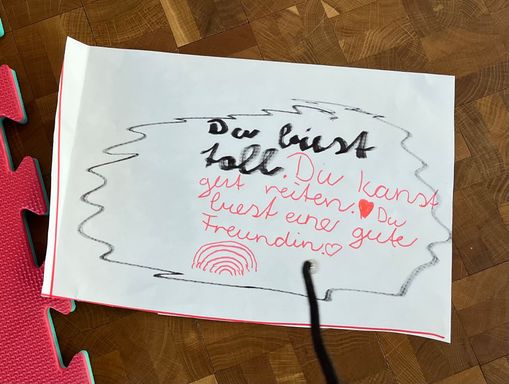 Du biest
toll. Du kanst
gut reiten. Du
biest eine gute
Freundin.